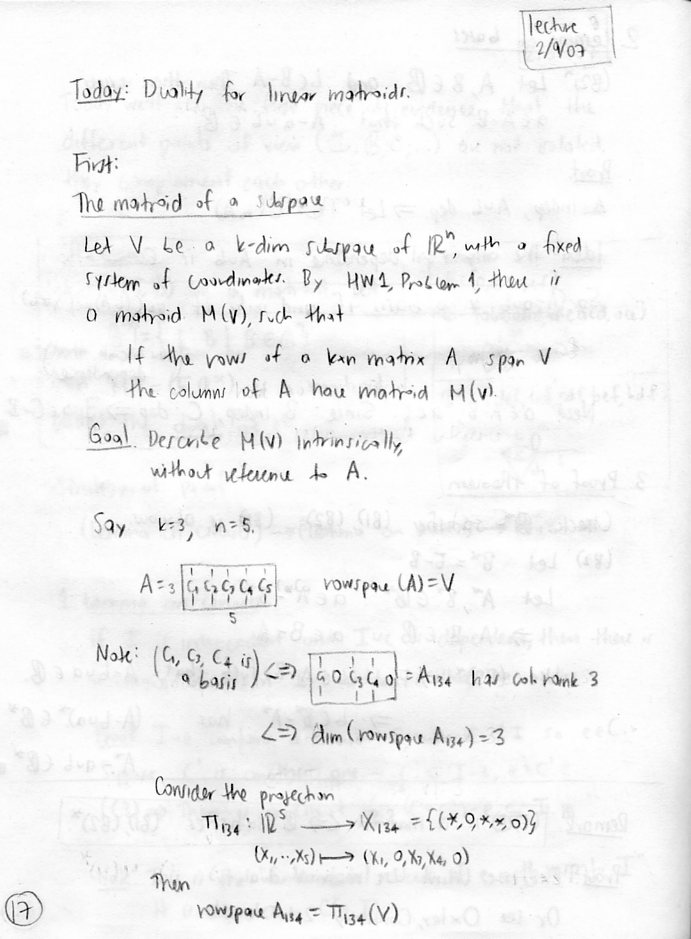 lecture
2/9/07
Today: Duality for linear matroids.
First:
The matroid of a subspace
Let V be a k-dim subspace of ℝⁿ, with a fixed
system of coordinates. By HW1, Problem 1, there is
a matroid M(V), such that
If the rows of a k×n matrix A span V
the columns of A have matroid M(V).
Goal. Describe M(V) intrinsically,
without reference to A.
Say k=3, n=5.
A = 3 [C₁ C₂ C₃ C₄ C₅] rowspace (A) = V
5
Note: (C₁, C₃, C₄ is a basis) <=> [C₁ 0 C₃ C₄ 0] = A₁₃₄ has col. rank 3
<=> dim (rowspace A₁₃₄) = 3
Consider the projection
π₁₃₄ : ℝ⁵ → X₁₃₄ = {(*,0,*,*,0)}
(x₁,..,x₅) ↦ (x₁, 0, x₃, x₄, 0)
Then
rowspace A₁₃₄ = π₁₃₄(V)
17